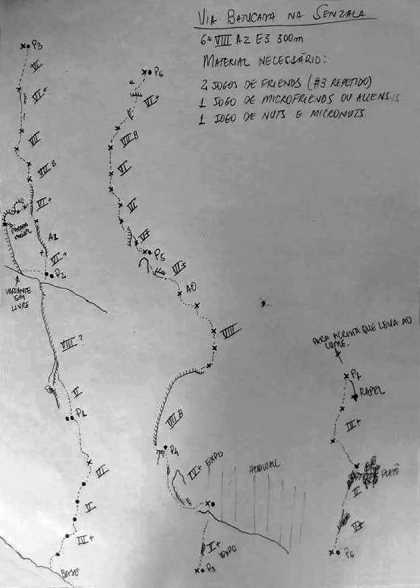 VIA BARICADA NA SENZALA
6º VIII A2 E3 300m
MATERIAL NECESSÁRIO:
2 JOGOS DE FRIENDS (#3 REPETIDO)
1 JOGO DE MICROFRIENDS OU ALIENS
1 JOGO DE NUTS E MICRONUTS
P3
VI
VI+
VII
VII.B
VI+
A2
P2
VARIANTE
EM
LIVRE
VIII?
V
P1
VI
V
IV+
BASE
P6
VI+
VII.B
VI
VI
P5
VI+
A0
VIII
VII.B
P4
V
IV+ EXPO
HERVAL
V+
EXPO
P3
PARA ACRISTA QUE LEVA AO
CUME.
P7
RAPEL
V+
PLATÔ
V
P6